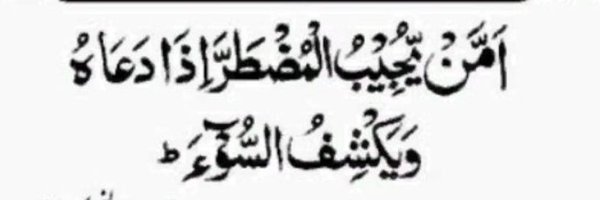 اَمَّنْ یُّجِیْبُ الْمُضْطَرَّ اِذَا دَعَاہُ
وَیَکْشِفُ السُّوْٓءَ ط